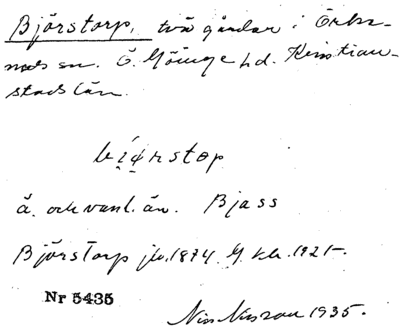 Björstorp, två gårdar i Örke-
neds sn. Ö. Göinge hd. Kristian-
stads län.
bíørstop
ä. och vanl. än. Bjass
Björstorp jb. 1874. G. kb. 1921-.
Nr 5435
1935.